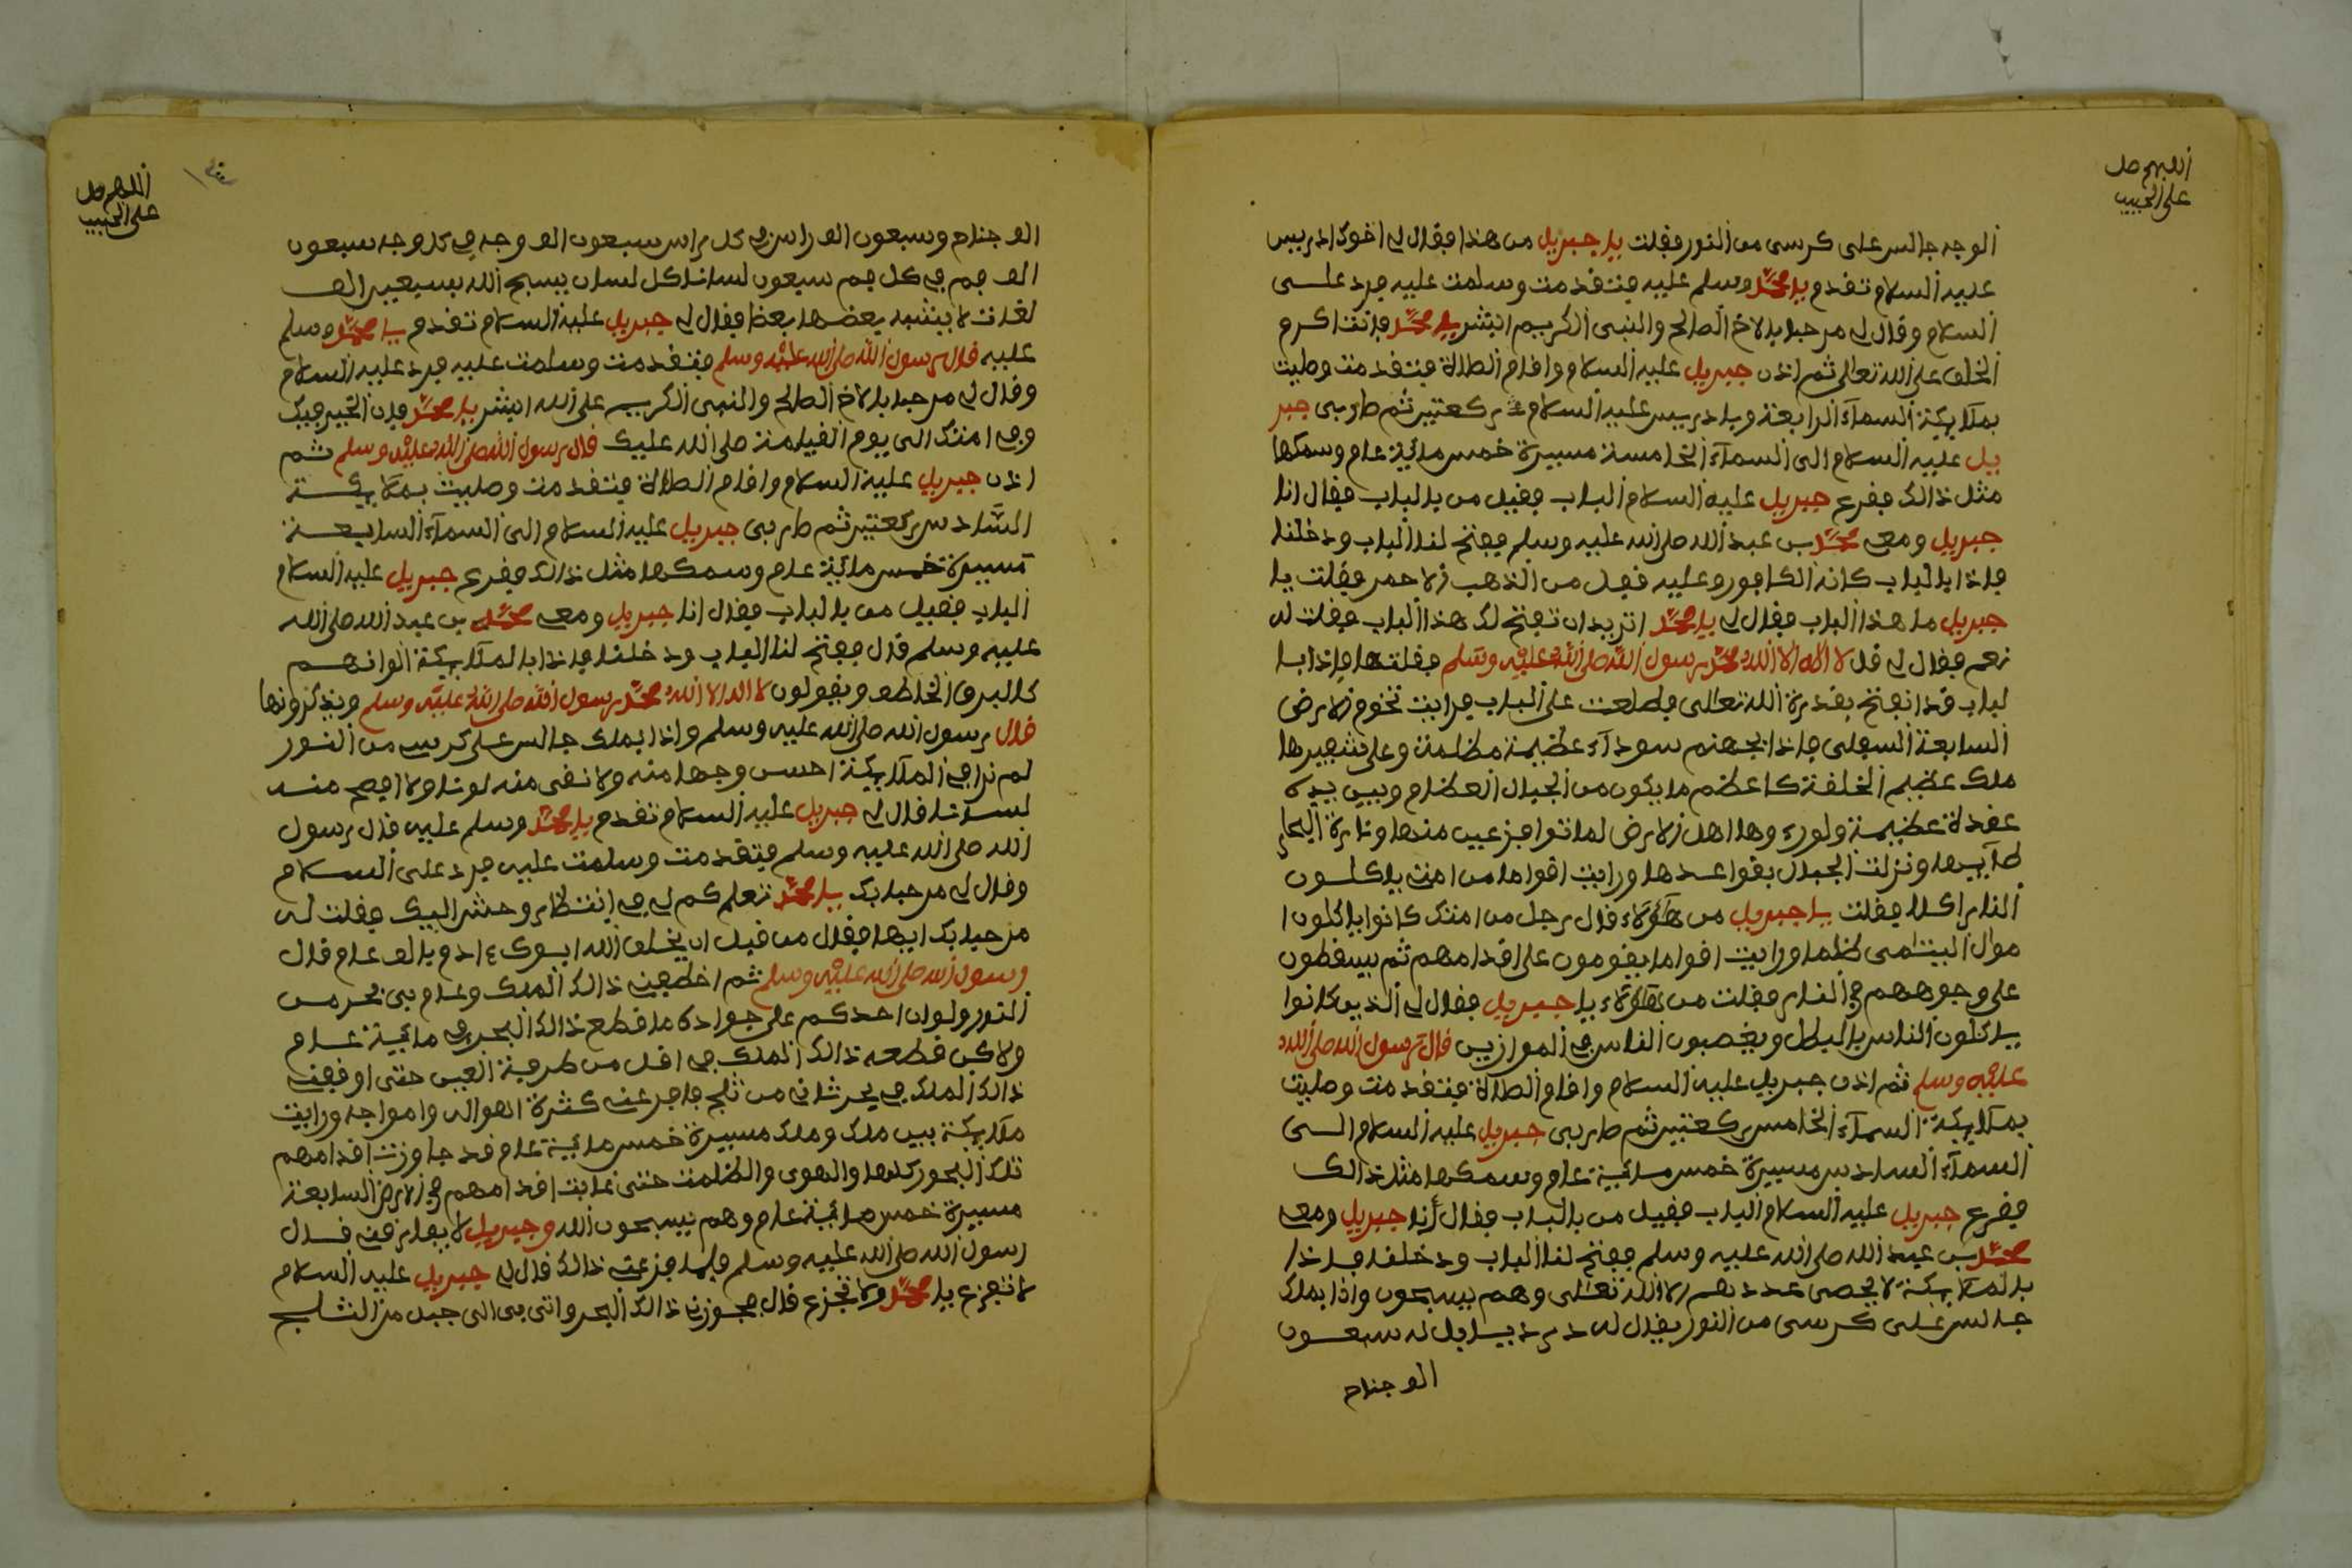 اللهم صل
على الحبيب
الوجه جالس على كرسى من النور فقلت يا جبريل من هذا فقال لي اخوك ادريس
عليه السلام تقدم يا محمد وسلم عليه فتقدمت وسلمت عليه فرد على
السلام وقال لي مرحبا بالاخ الصالح والنبى الكريم ابشر يا محمد فانت اكرم
الخلق على الله تعالى ثم اذن جبريل عليه السلام واقام الصلاة فتقدمت وصليت
بملايكة السمآء الرابعة وبادريس عليه السلام ركعتين ثم طار بى جبر
يل عليه السلام الى السمآء الخامسة مسيرة خمس مائية عام وسمكها
مثل ذالك فقرع جبريل عليه السلام الباب فقيل من بالباب فقال انا
جبريل ومعى محمد بن عبد الله صلى الله عليه وسلم ففتح لنا الباب ودخلنا
فاذا بالباب كانه الكافور وعليه قفل من الذهب الاحمر فقلت يا
جبريل ما هذا الباب فقال لي يا محمد اتريد ان تفتح لك هذا الباب فقلت له
نعم فقال لي قل لا اله الا الله محمد رسول الله صلى الله عليه وسلم فقلتها فاذا با
لباب قد انفتح بقدرة الله تعالى فطلعت على الباب فرايت تخوم الارض
السابعة السفلى فاذا بجهنم سودآء عظيمة مظلمة وعلى شفيرها
ملك عظيم الخلقة كاعظم ما يكون من الجبال العظام وبين يديه
عقدة عظيمة ولورءوها اهل الارض لماتوا جزعين منها ونارة البحار
طآيبها ونزلت الجبال بقواعدها ورايت اقواما من امتى ياكلون
النار اكلا فقلت يا جبريل من هؤلاء قال رجل من امتك كانوا ياكلون ا
موال اليتامى ظلما ورايت اقواما يقومون على اقدامهم ثم يسقطون
على وجوههم في النار فقلت من هؤلاء يا جبريل فقال لي الذين كانوا
ياكلون الناس بالبطل ويغصبون الناس في الموازين قال رسول الله صلى الله
عليه وسلم ثم اذن جبريل عليه السلام واقام الصلاة فتقدمت وصليت
بملايكة السمآء الخامس ركعتين ثم طار بى جبريل عليه السلام الى
السمآء السادس مسيرة خمس مائية عام وسمكها مثل ذالك
فقرع جبريل عليه السلام الباب فقيل من بالباب فقال أنا جبريل ومعى
محمد بن عبد الله صلى الله عليه وسلم ففتح لنا الباب ودخلنا فاذا
بالملايكة لا يحصى عددهم الا الله تعالى وهم يسبحون واذا بملك
جالس على كرسى من النور يقال له دردياييل له سبعون
الف جناح
اللهم صل
على الحبيب
الف جناح وسبعون الف راس في كل راس سبعون الف وجه في كل وجه سبعون
الف فم في كل فم سبعون لسانا كل لسان يسبح الله بسبعين الف
لغات لا يشبه بعضها بعظا فقال لي جبريل عليه السلام تقدم يا محمد وسلم
عليه قال رسول الله صلى الله عليه وسلم فتقدمت وسلمت عليه فرد عليه السلام
وقال لي مرحبا بالاخ الصالح والنبى الكريم على الله ابشر يا محمد فان الخير فيك
وفي امتك الى يوم القيامة صلى الله عليك قال رسول الله صلى الله عليه وسلم ثم
اذن جبريل عليه السلام واقام الصلاة فتقدمت وصليت بملايكة
السادس ركعتين ثم طار بى جبريل عليه السلام الى السمآء السابعة
مسيرة خمس مائية عام وسمكها مثل ذالك فقرع جبريل عليه السلام
الباب فقيل من بالباب فقال انا جبريل ومعى محمد بن عبد الله صلى الله
عليه وسلم قال ففتح لنا الباب ودخلنا فاذا بالملايكة الوانهم
كالبرق الخاطف ويقولون لا اله الا الله محمد رسول الله صلى الله عليه وسلم ويذكرونها
قال رسول الله صلى الله عليه وسلم واذا بملك جالس على كرسي من النور
لم نرا في الملايكة احسن وجها منه ولا نقى منه لونا ولا افصح منه
لسانا قال لي جبريل عليه السلام تقدم يا محمد وسلم عليه قال رسول
الله صلى الله عليه وسلم فتقدمت وسلمت عليه فرد على السلام
وقال لي مرحبا بك يا محمد تعلم كم لي في انتظار وحش اليك فقلت له
مرحبا بك ايها فقال من قبل ان يخلق الله ابوك ءادم بالف عام قال
رسول الله صلى الله عليه وسلم ثم اخطفنى ذالك الملك وعام بى بحر من
النور ولو ان احدكم على جواده ما قطع ذالك البحر في مائية عام
ولاكن قطعه ذالك الملك في اقل من طرفة العين حتى اوقفنى
ذالك الملك في بحر ثانى من ثلج فاجرعنى كثرة اهواله وامواجه ورايت
ملايكة بين ملك وملك مسيرة خمس مائية عام قد جاوزت اقدامهم
تلك البحور كلها والهوى والظلمت حتى غابت اقدامهم في الارض السابعة
مسيرة خمس مائية عام وهم يسبحون الله وجبريل لا يفارقنى قال
رسول الله صلى الله عليه وسلم فلما جزعنى ذالك قال لي جبريل عليه السلام
لا تفزع يا محمد ولا تجزع قال فجوزنى ذالك البحر واتى بى الى جبل من الثلج